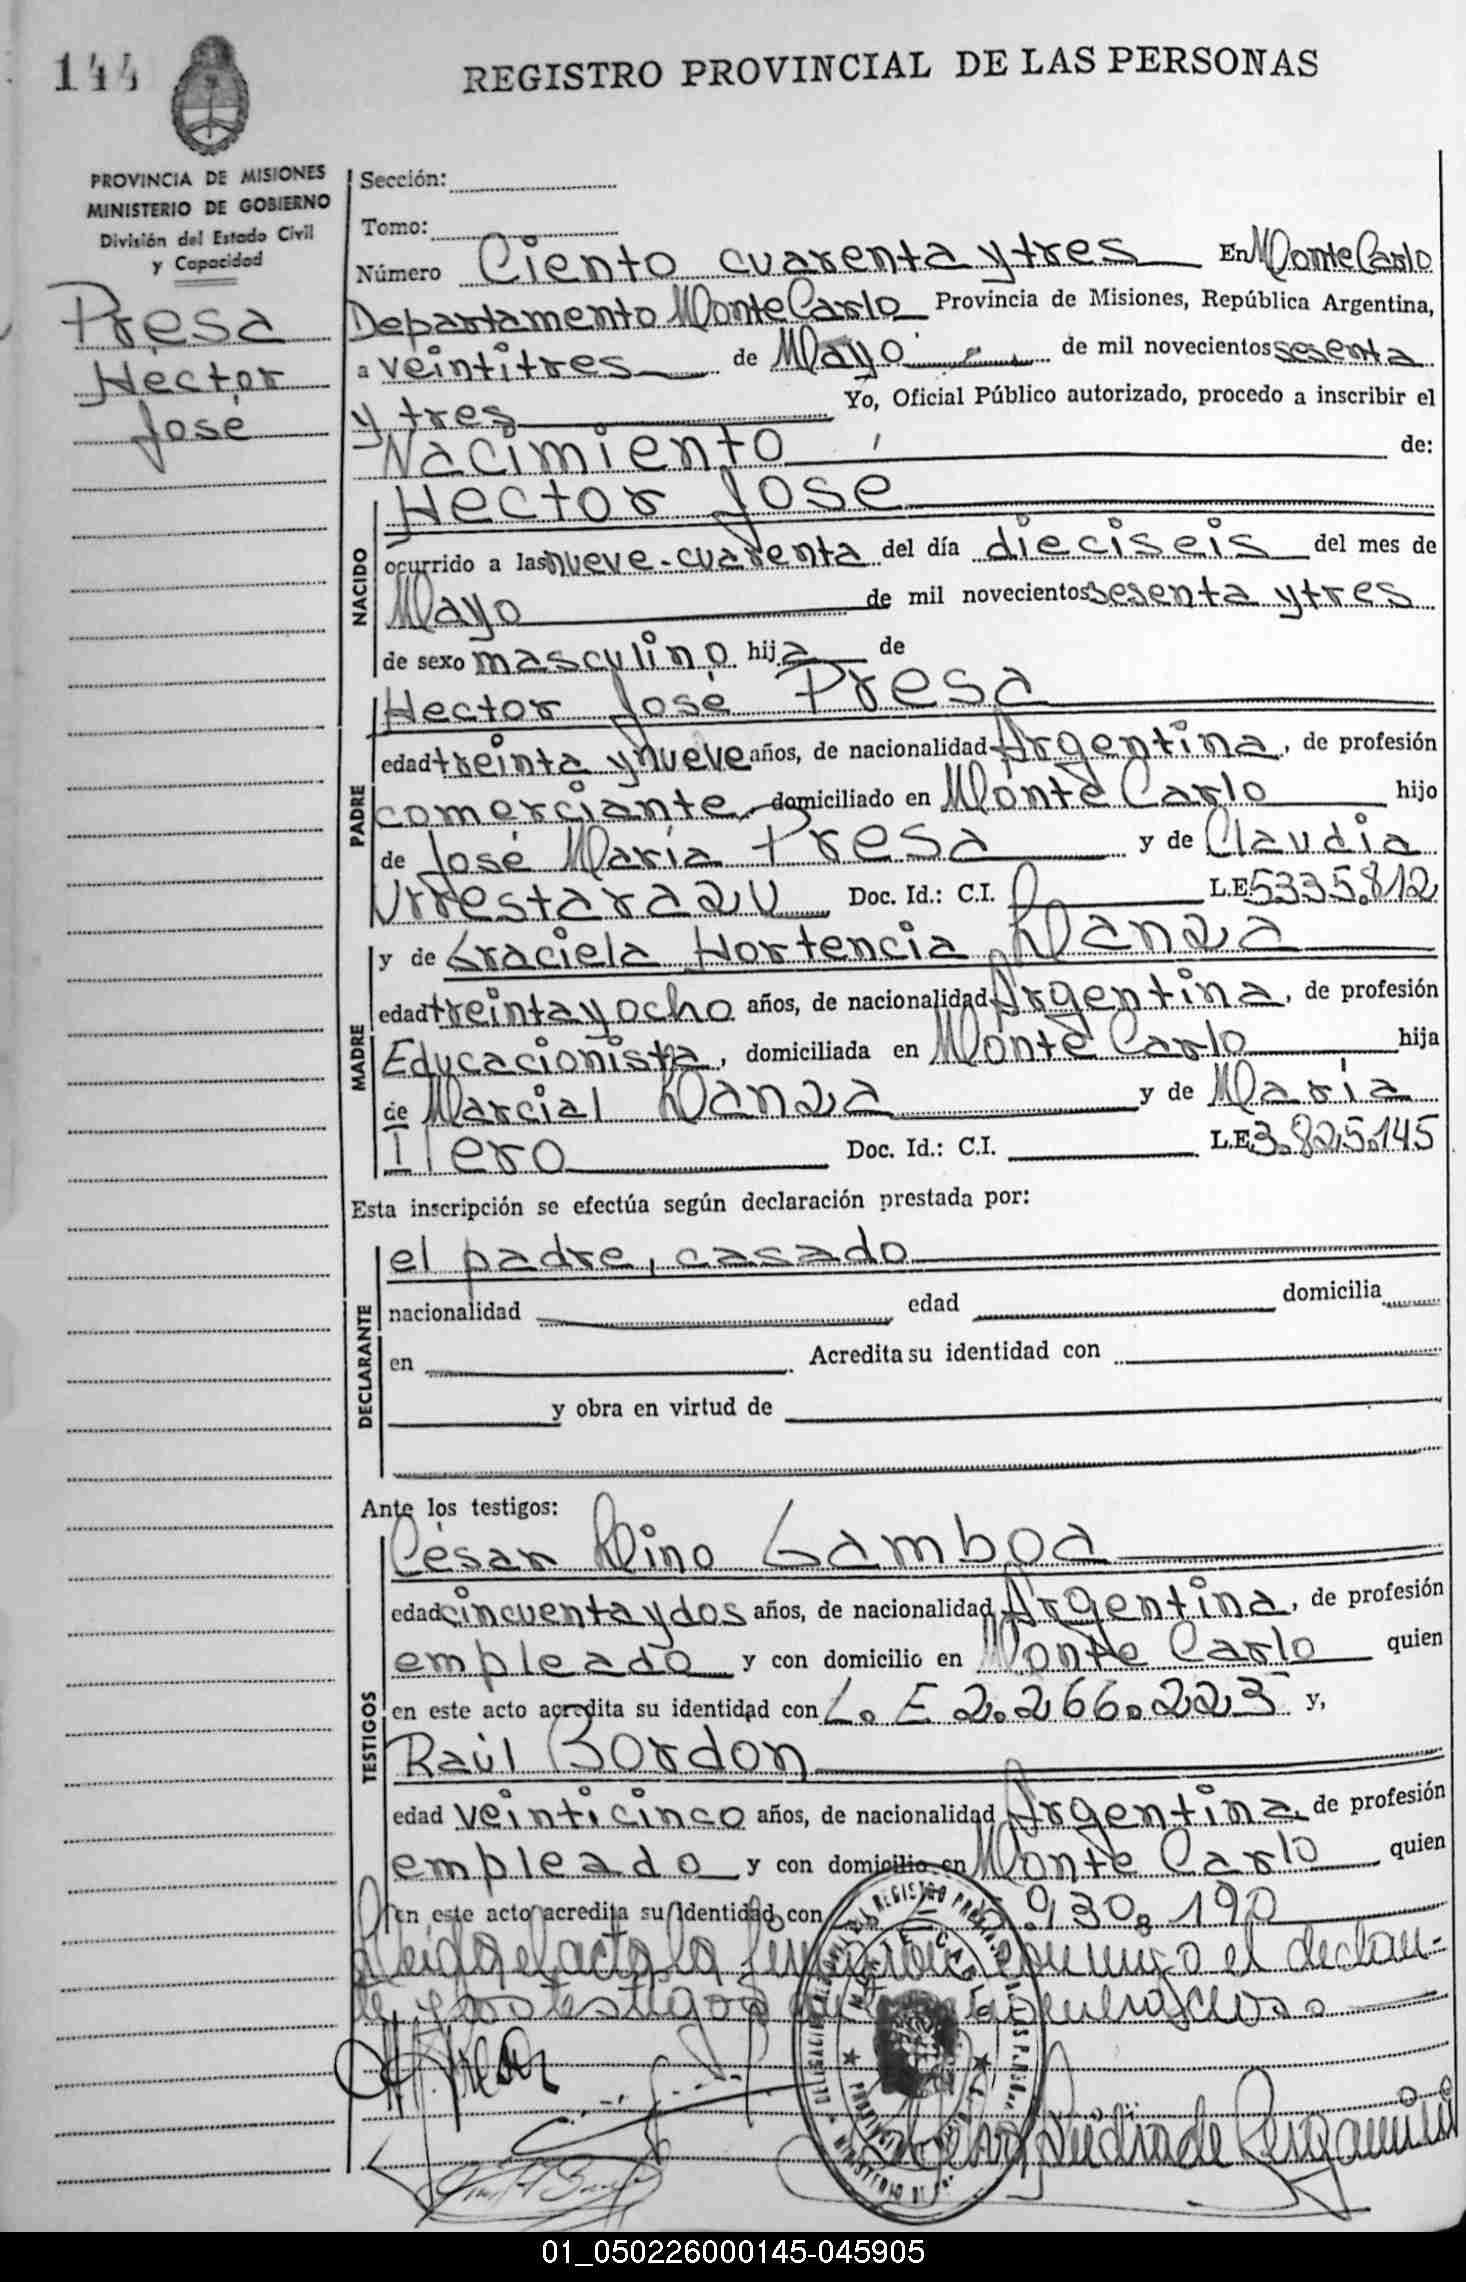 144
REGISTRO PROVINCIAL DE LAS PERSONAS
PROVINCIA DE MISIONES
MINISTERIO DE GOBIERNO
División del Estado Civil
y Capacidad
Presa
Héctor
José
Sección:
Tomo:
Número Ciento cuarenta y tres En Monte Carlo
Departamento Monte Carlo Provincia de Misiones, República Argentina,
a veintitres de Mayo de mil novecientos sesenta
y tres Yo, Oficial Público autorizado, procedo a inscribir el
Nacimiento de:
NACIDO
Hector José
ocurrido a las nueve-cuarenta del día dieciseis del mes de
Mayo de mil novecientos sesenta y tres
de sexo masculino hija de
PADRE
Hector José Presa
edad treinta y nueve años, de nacionalidad Argentina, de profesión
comerciante, domiciliado en Monte Carlo hijo
de José María Presa y de Claudia
Urrestarazu Doc. Id.: C.I. L.E. 5335.812
MADRE
y de Graciela Hortencia Danza
edad treinta y ocho años, de nacionalidad Argentina, de profesión
Educacionista, domiciliada en Monte Carlo hija
de Marcial Danza y de María
Illero Doc. Id.: C.I. L.E. 3.825.145
Esta inscripción se efectúa según declaración prestada por:
DECLARANTE
el padre, casado
nacionalidad edad domicilia
en Acredita su identidad con
y obra en virtud de
Ante los testigos:
TESTIGOS
César Dino Gamboa
edad cincuenta y dos años, de nacionalidad Argentina, de profesión
empleado y con domicilio en Monte Carlo quien
en este acto acredita su identidad con L. E 2.266.223 y,
Raúl Bordon
edad veinticinco años, de nacionalidad Argentina, de profesión
empleado y con domicilio en Monte Carlo quien
en este acto acredita su identidad con 930.190
Leida el acta la firmaron conmigo el declaran-
te y los testigos
01_050226000145-045905